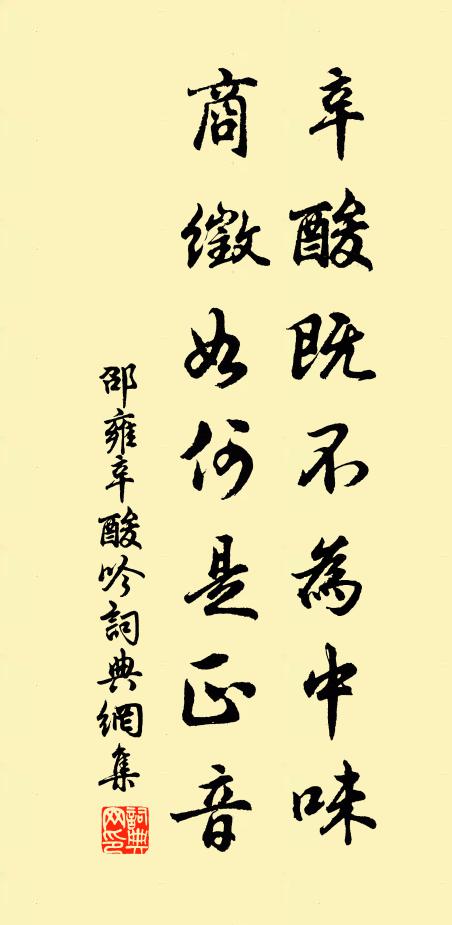 辛酸既不為中味
商徵如何是正音
邵雍辛酸吟詞典網集
詞典网印